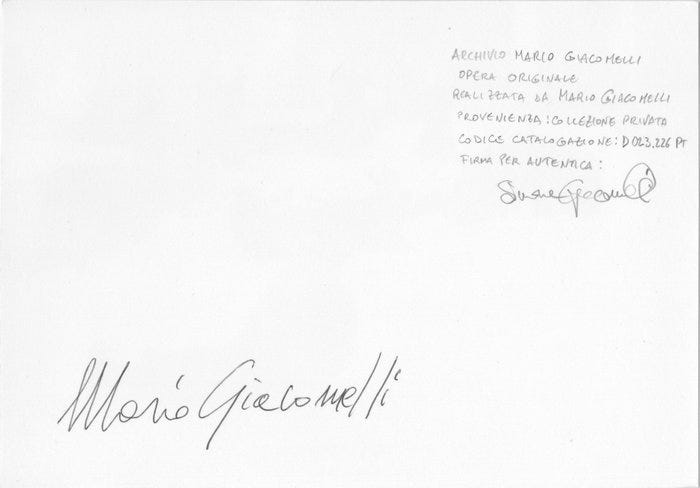 ARCHIVIO MARIO GIACOMELLI
OPERA ORIGINALE
REALIZZATA DA MARIO GIACOMELLI
PROVENIENZA: COLLEZIONE PRIVATA
CODICE CATALOGAZIONE: D023,226 PT
FIRMA PER AUTENTICA:
Simone Giacomelli
Mario Giacomelli